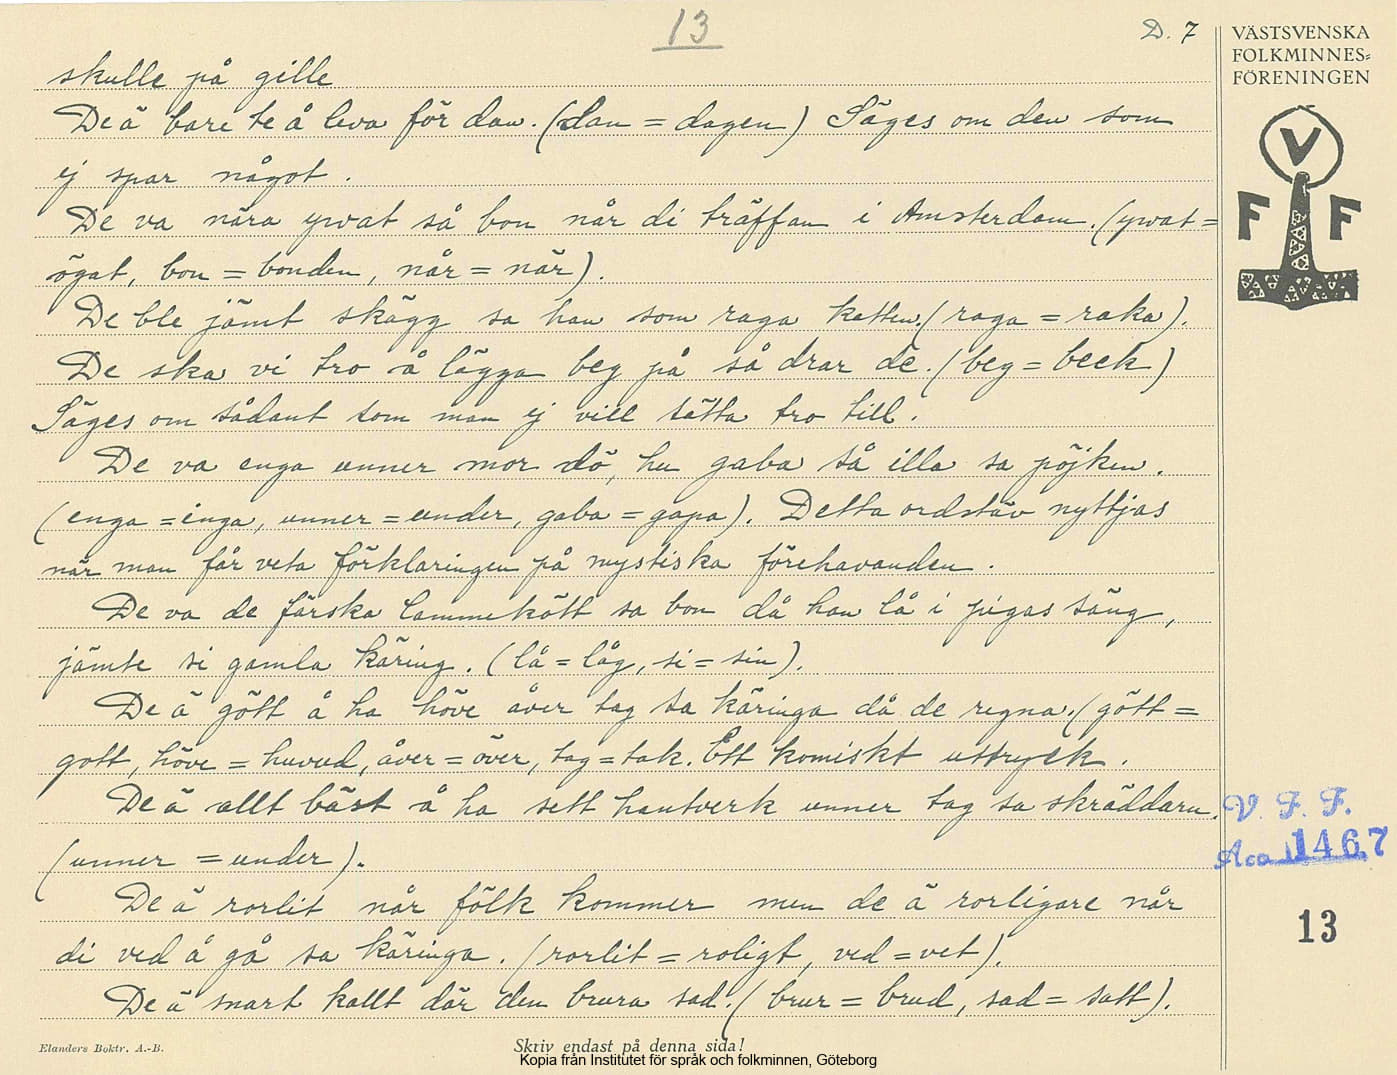 13
D. 7
VÄSTSVENSKA
FOLKMINNES-
FÖRENINGEN
V
F F
skulle på gille
De ä bare te å leva för dan. (dan = dagen) Säges om den som
ej spar något.
De va nära ywat så bon når di träffan i Amsterdam. (ywat =
ögat, bon = bonden, når = när).
De ble jämt skägg sa han som raga katten. (raga = raka).
De ska vi tro å lägga beg på så drar de. (beg = beck)
Säges om sådant som man ej vill sätta tro till.
De va enga unner mor dö, hu gaba så illa sa pöjken.
(enga = inga, unner = under, gaba = gapa). Detta ordstäv nyttjas
när man får veta förklaringen på mystiska förehavanden.
De va de färska lammekött sa bon då han lå i pigas säng,
jämte si gamla käring. (lå = låg, si = sin).
De ä gött å ha höve åver tag sa käringa då de regna. (gött =
gott, höve = huvud, åver = över, tag = tak. Ett komiskt uttryck.
De ä allt bäst å ha sett hantverk unner tag sa skräddarn.
(unner = under).
De ä rorlit når fölk kommer men de ä rorligare når
di ved å gå sa käringa. (rorlit = roligt, ved = vet).
De ä snart kallt där den brura sad. (brur = brud, sad = satt).
V. F. F.
Acc 1467
13
Elanders Boktr. A.-B.
Skriv endast på denna sida!
Kopia från Institutet för språk och folkminnen, Göteborg